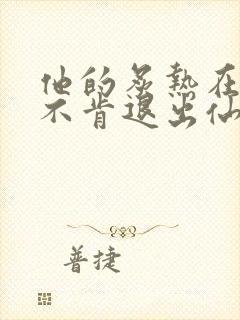 他的炙热在
不肯退出仙
普捷